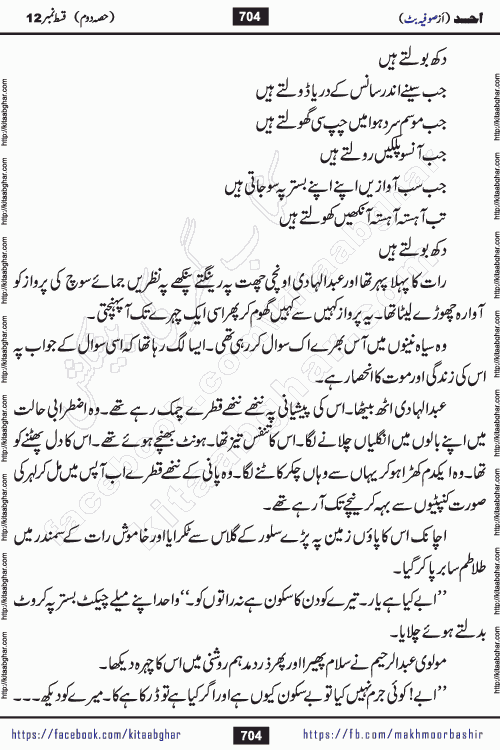 احد (از صوفیہ بٹ) 704 (حصہ دوم) قسط نمبر 12
دکھ بولتے ہیں
جب سینے اندر سانس کے دریا ڈولتے ہیں
جب موسم سرد ہوا میں چپ سی گھولتے ہیں
جب آنسو پلکیں رولتے ہیں
جب سب آوازیں اپنے اپنے بستر پہ سو جاتی ہیں
تب آہستہ آہستہ آنکھیں کھولتے ہیں
دکھ بولتے ہیں
رات کا پہلا پہر تھا اور عبدالہادی اونچی چھت پہ رینگتے پنکھے پہ نظریں جمائے سوچ کی پرواز کو
آوارہ چھوڑے لیٹا تھا۔ یہ پرواز کہیں سے کہیں گھوم کر پھر اسی ایک چہرے تک آ پہنچتی۔
وہ سیاہ نینوں میں آس بھرے اک سوال کر رہی تھی۔ ایسا لگ رہا تھا کہ اسی سوال کے جواب پہ
اس کی زندگی اور موت کا انحصار ہے۔
عبدالہادی اٹھ بیٹھا۔ اس کی پیشانی پہ ننھے ننھے قطرے چمک رہے تھے۔ وہ اضطرابی حالت
میں اپنے بالوں میں انگلیاں چلانے لگا۔ اس کا تنفس تیز تھا۔ ہونٹ بھنچے ہوئے تھے۔ اس کا دل پھٹنے کو
تھا۔ وہ ایکدم کھڑا ہو کر یہاں سے وہاں چکر کاٹنے لگا۔ وہ پانی کے ننھے قطرے اب آپس میں مل کر لہر کی
صورت کنپٹیوں سے بہہ کر نیچے تک آ رہے تھے۔
اچانک اس کا پاؤں زمین پہ پڑے سلور کے گلاس سے ٹکرایا اور خاموش رات کے سمندر میں
طلاطم سا برپا کر گیا۔
’’ابے کیا ہے یار۔ تیرے کو دن کا سکون ہے نہ راتوں کو۔‘‘ واحد اپنے میلے چیکٹ بستر پہ کروٹ
بدلتے ہوئے چلایا۔
مولوی عبدالرحیم نے سلام پھیرا اور پھر زرد مدہم روشنی میں اس کا چہرہ دیکھا۔
’’ابے! کوئی جرم نہیں کیا تو بے سکون کیوں ہے اور اگر کیا ہے تو ڈر کا ہے کا۔ میرے کو دیکھ۔۔۔
https://facebook.com/kitaabghar 704 https://fb.com/makhmoorbashir
http://kitaabghar.com
kitaabghar.com
facebook.com/kitaabghar
کتاب گھر کی پیشکش